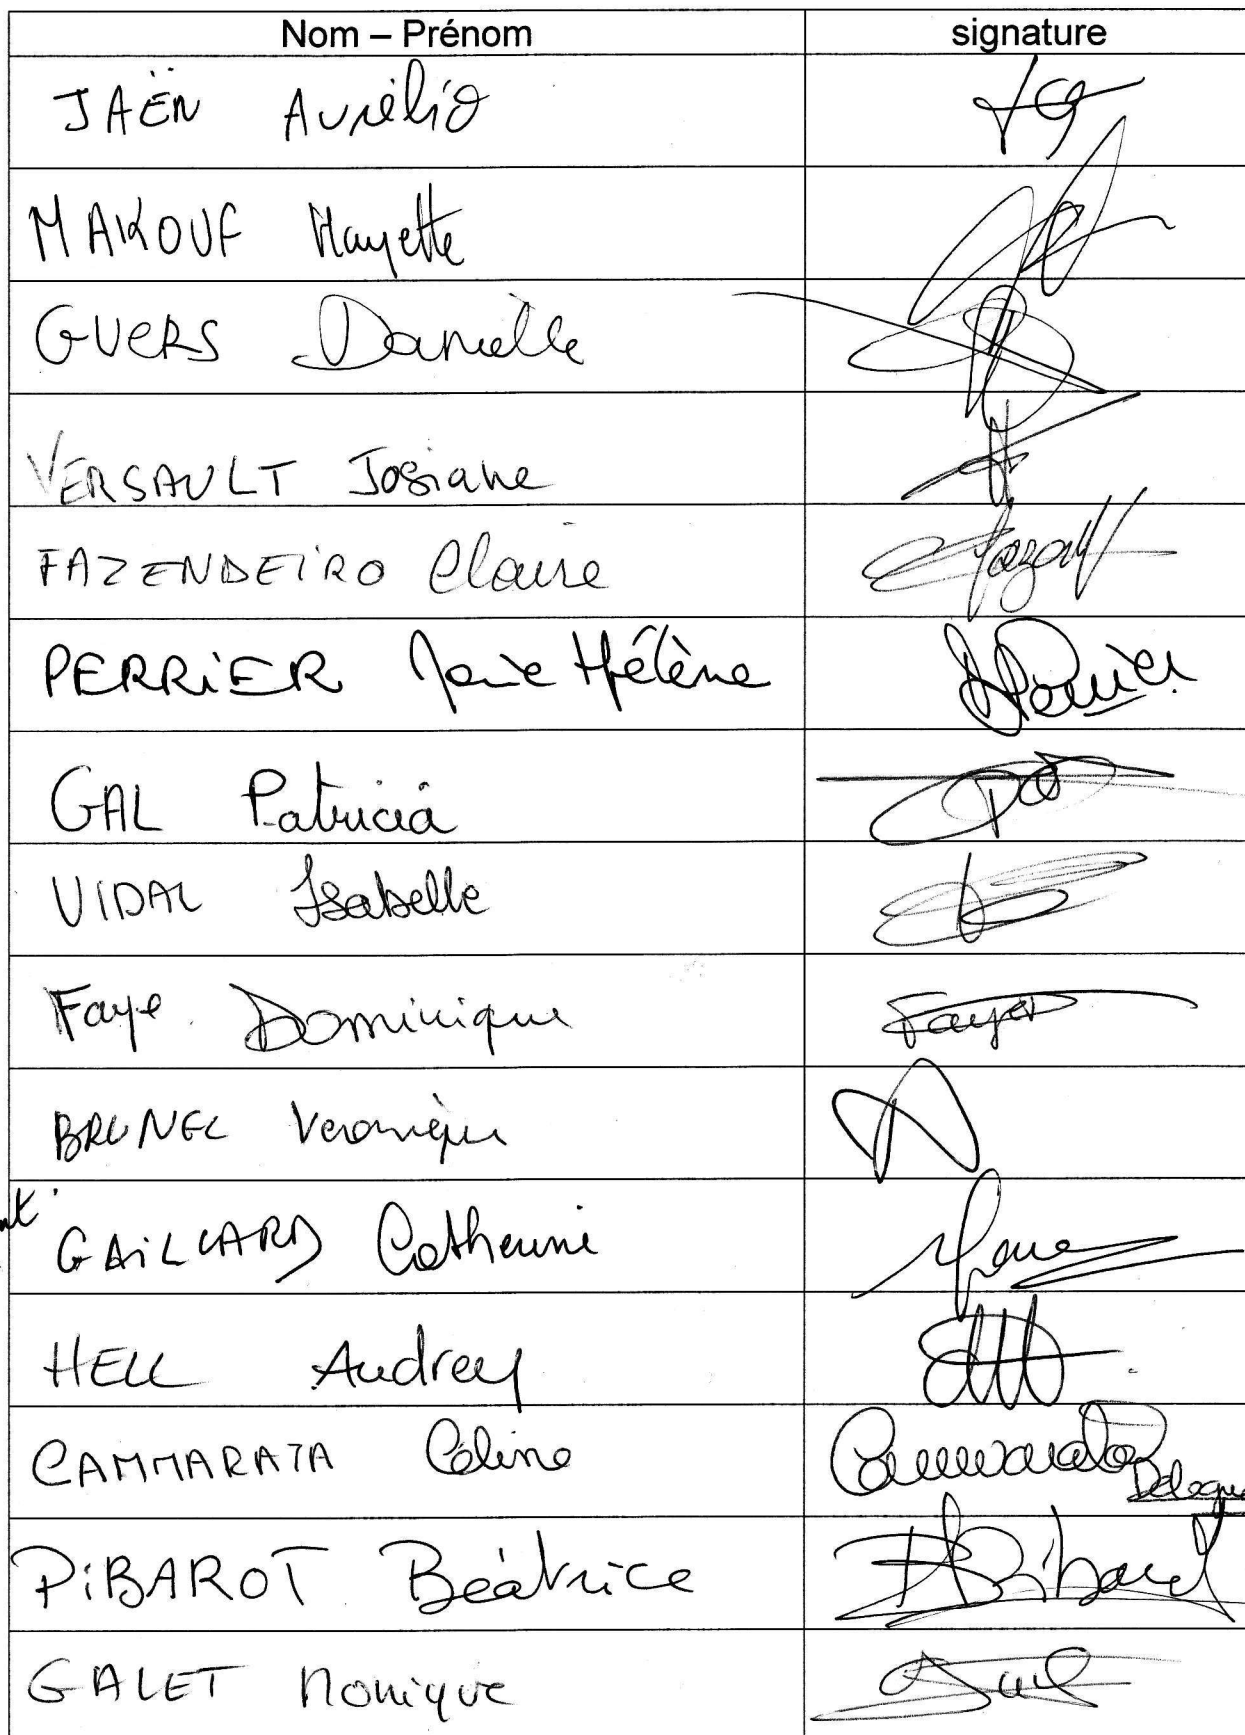 Nom – Prénom signature
JAËN Aurélie
MAKOUF Mayette
GUERS Danielle
VERSAULT Josiane
FAZENDEIRO Claire
PERRIER Marie Hélène Perrier
GAL Patricia
VIDAL Isabelle
Faye Dominique Faye
BRUNEL Veronique
GAILLARD Catherine
HELL Audrey
CAMMARATA Céline Cammarata
PIBAROT Béatrice
GALET Monique